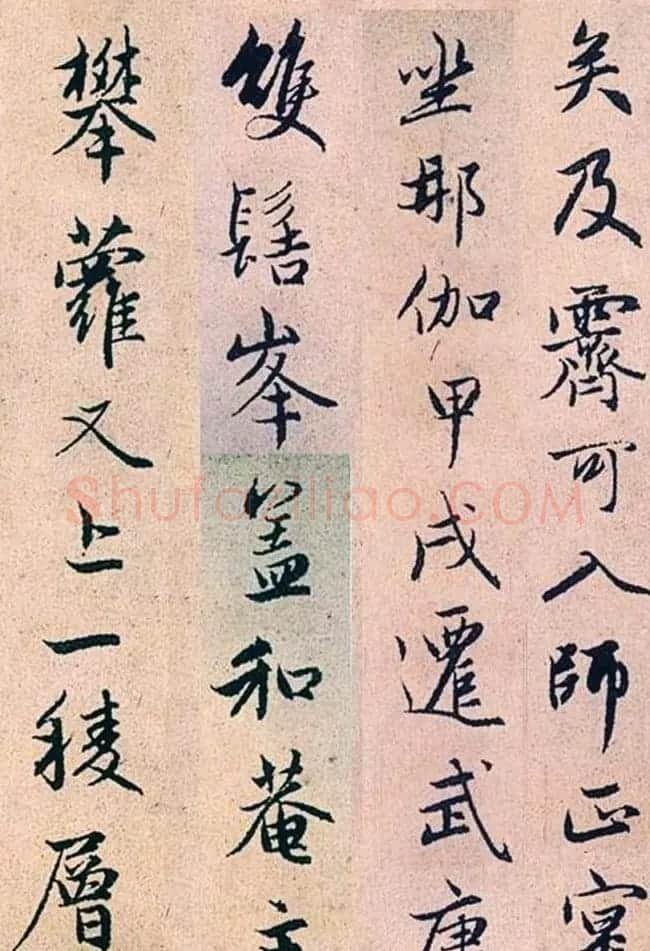 矣及霽可入師正冥
坐那伽甲戌遷武康
雙髻峯蓋和菴主
攀蘿又上一稜層
Shufaziliao.COM